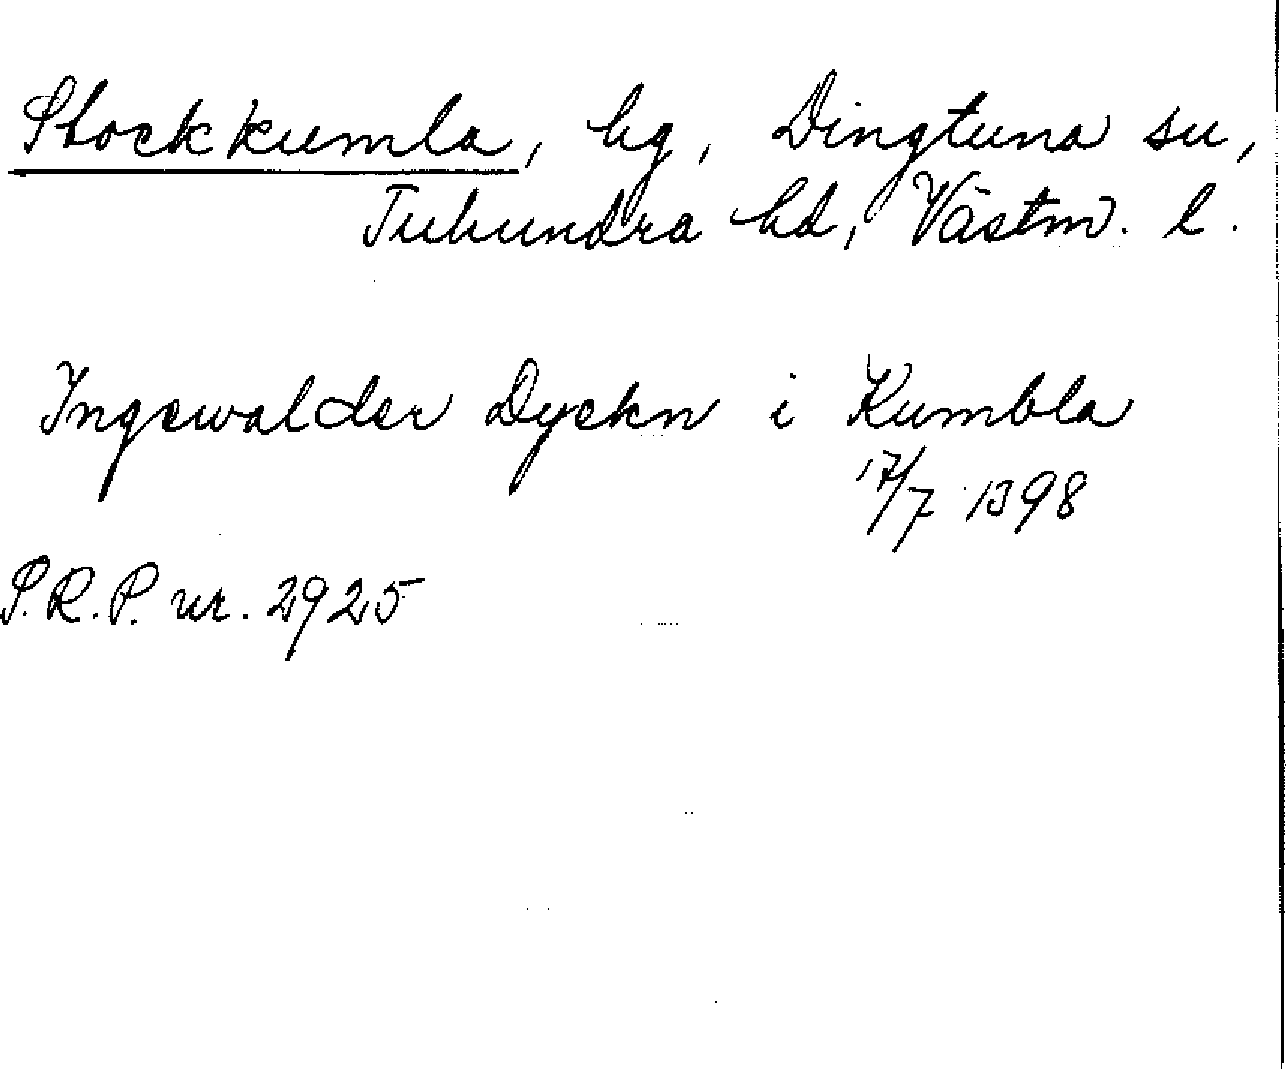 Stockkumla, hg, Dingtuna sn,
Tuhundra hd, Västm. l.
Ingewalder Dyekn i Kumbla
17/7 1398
S.R.P. nr. 2925